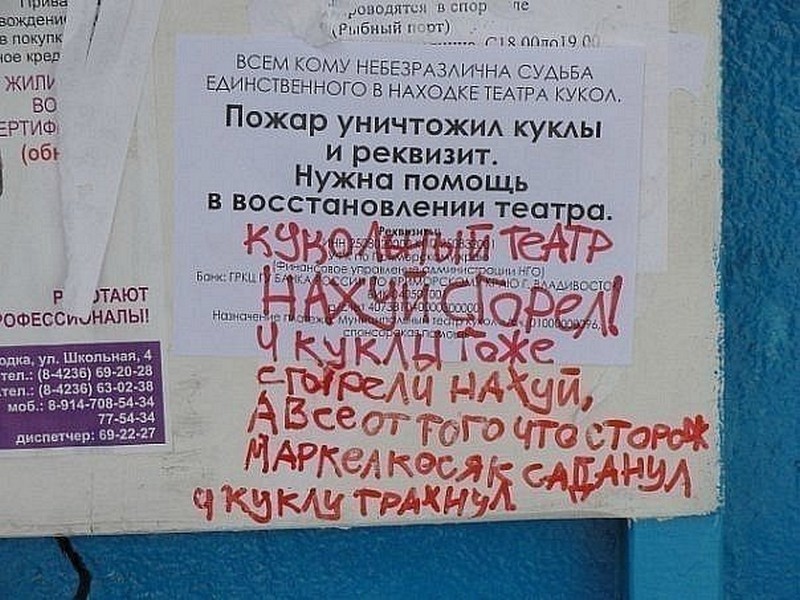 Прива
вождение
в покупк
ное кред
ЖИЛИ
ВО
ЕРТИФ
(обн
РОФЕССИОНАЛЫ!
одка, ул. Школьная, 4
тел.: (8-4236) 69-20-28
тел.: (8-4236) 63-02-38
моб.: 8-914-708-54-34
77-54-34
диспетчер: 69-22-27
роводятся в спор ле
(Рыбный порт)
С18.00до19.00
ВСЕМ КОМУ НЕБЕЗРАЗЛИЧНА СУДЬБА
ЕДИНСТВЕННОГО В НАХОДКЕ ТЕАТРА КУКОЛ.
Пожар уничтожил куклы
и реквизит.
Нужна помощь
в восстановлении театра.
Реквизиты
(Финансовое управление администрации НГО)
Банк: ГРКЦ ГУ БАНКА РОССИИ ПО ПРИМОРСКОМУ КРАЮ Г. ВЛАДИВОСТОК
Назначение платежа: Муниципальный театр кукол
спонсорская помощь
КУКОЛЬНЫЙ ТЕАТР
НАХУЙ СГОРЕЛ!
И КУКЛЫ ТОЖЕ
СГОРЕЛИ НАХУЙ,
А ВСЕ ОТ ТОГО ЧТО СТОРОЖ
МАРКЕЛ КОСЯК САДАНУЛ
И КУКЛУ ТРАХНУЛ.